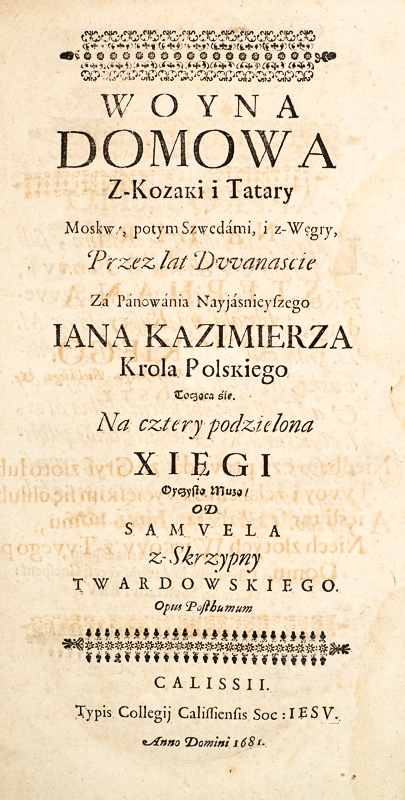 WOYNA
DOMOWA
Z-Kozaki i Tatary
Moskwą, potym Szwedámi, i z-Węgry,
Przez lat Dwanascie
Za Pánowánia Nayjásnieyſzego
IANA KAZIMIERZA
Krola Polskiego
Tocząca śie.
Na cztery podzielona
XIĘGI
Oyczystą Muzą/
OD
SAMVELA
z-Skrzypny
TWARDOWSKIEGO.
Opus Poſthumum
CALISSII.
Typis Collegij Caliſſienſis Soc: IESV.
Anno Domini 1681.